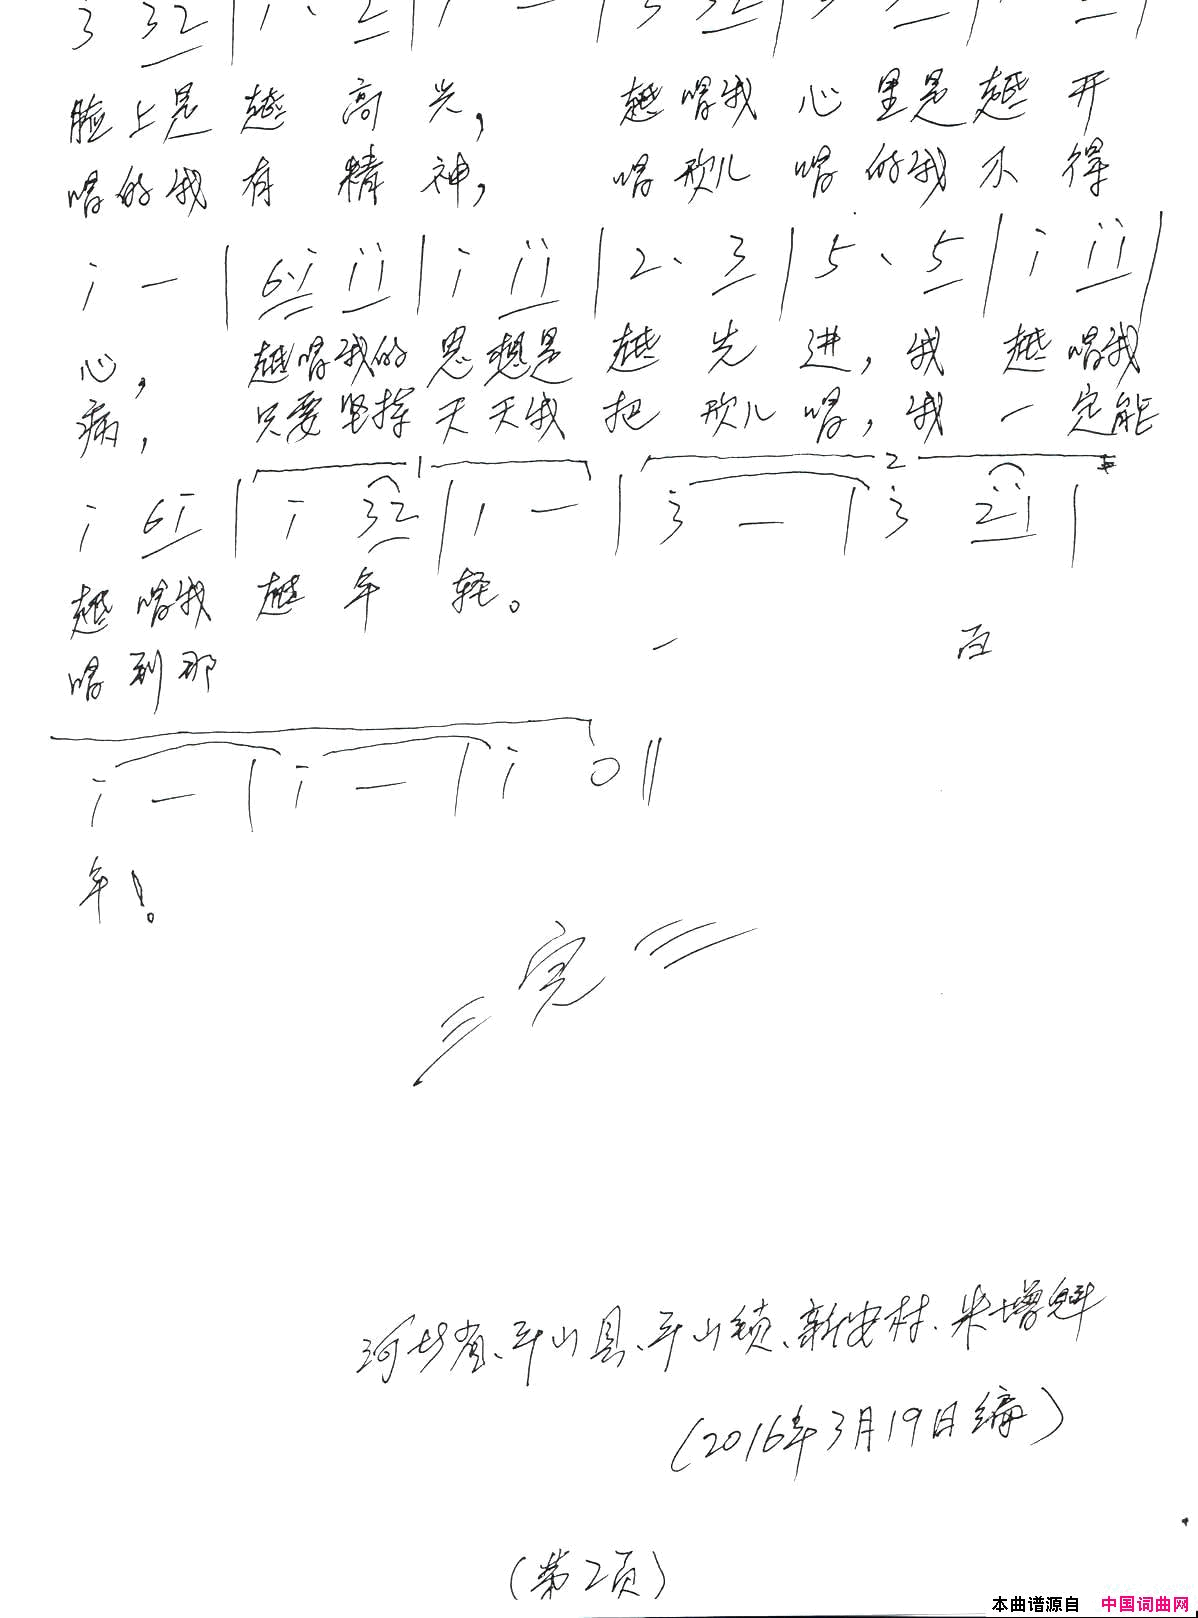 3 32 | 1 · 2 | 1 — | 3 32 |
脸上是 越 高 兴， 越唱我 心 里是越 开
唱的我 有 精 神， 唱歌儿 唱 的我 不 得
i — | 6·i ii | i ii | 2 · 3 | 5 · 5 | i ii |
心， 越唱我的 思 想是 越 先 进，我 越唱我
病， 只要坚持 天 天我 把 歌儿 唱，我 一 定能
1 2
i 6i | i 32 | 1 — | 3 — | 3 2i |
越 唱我 越 年 轻。
一 百
唱 到那
i — | i — | i 0 ‖
年！
完
河北省、平山县、平山镇、新安村、朱增魁
（2016年3月19日编）
（第2页）
本曲谱源自 中国词曲网